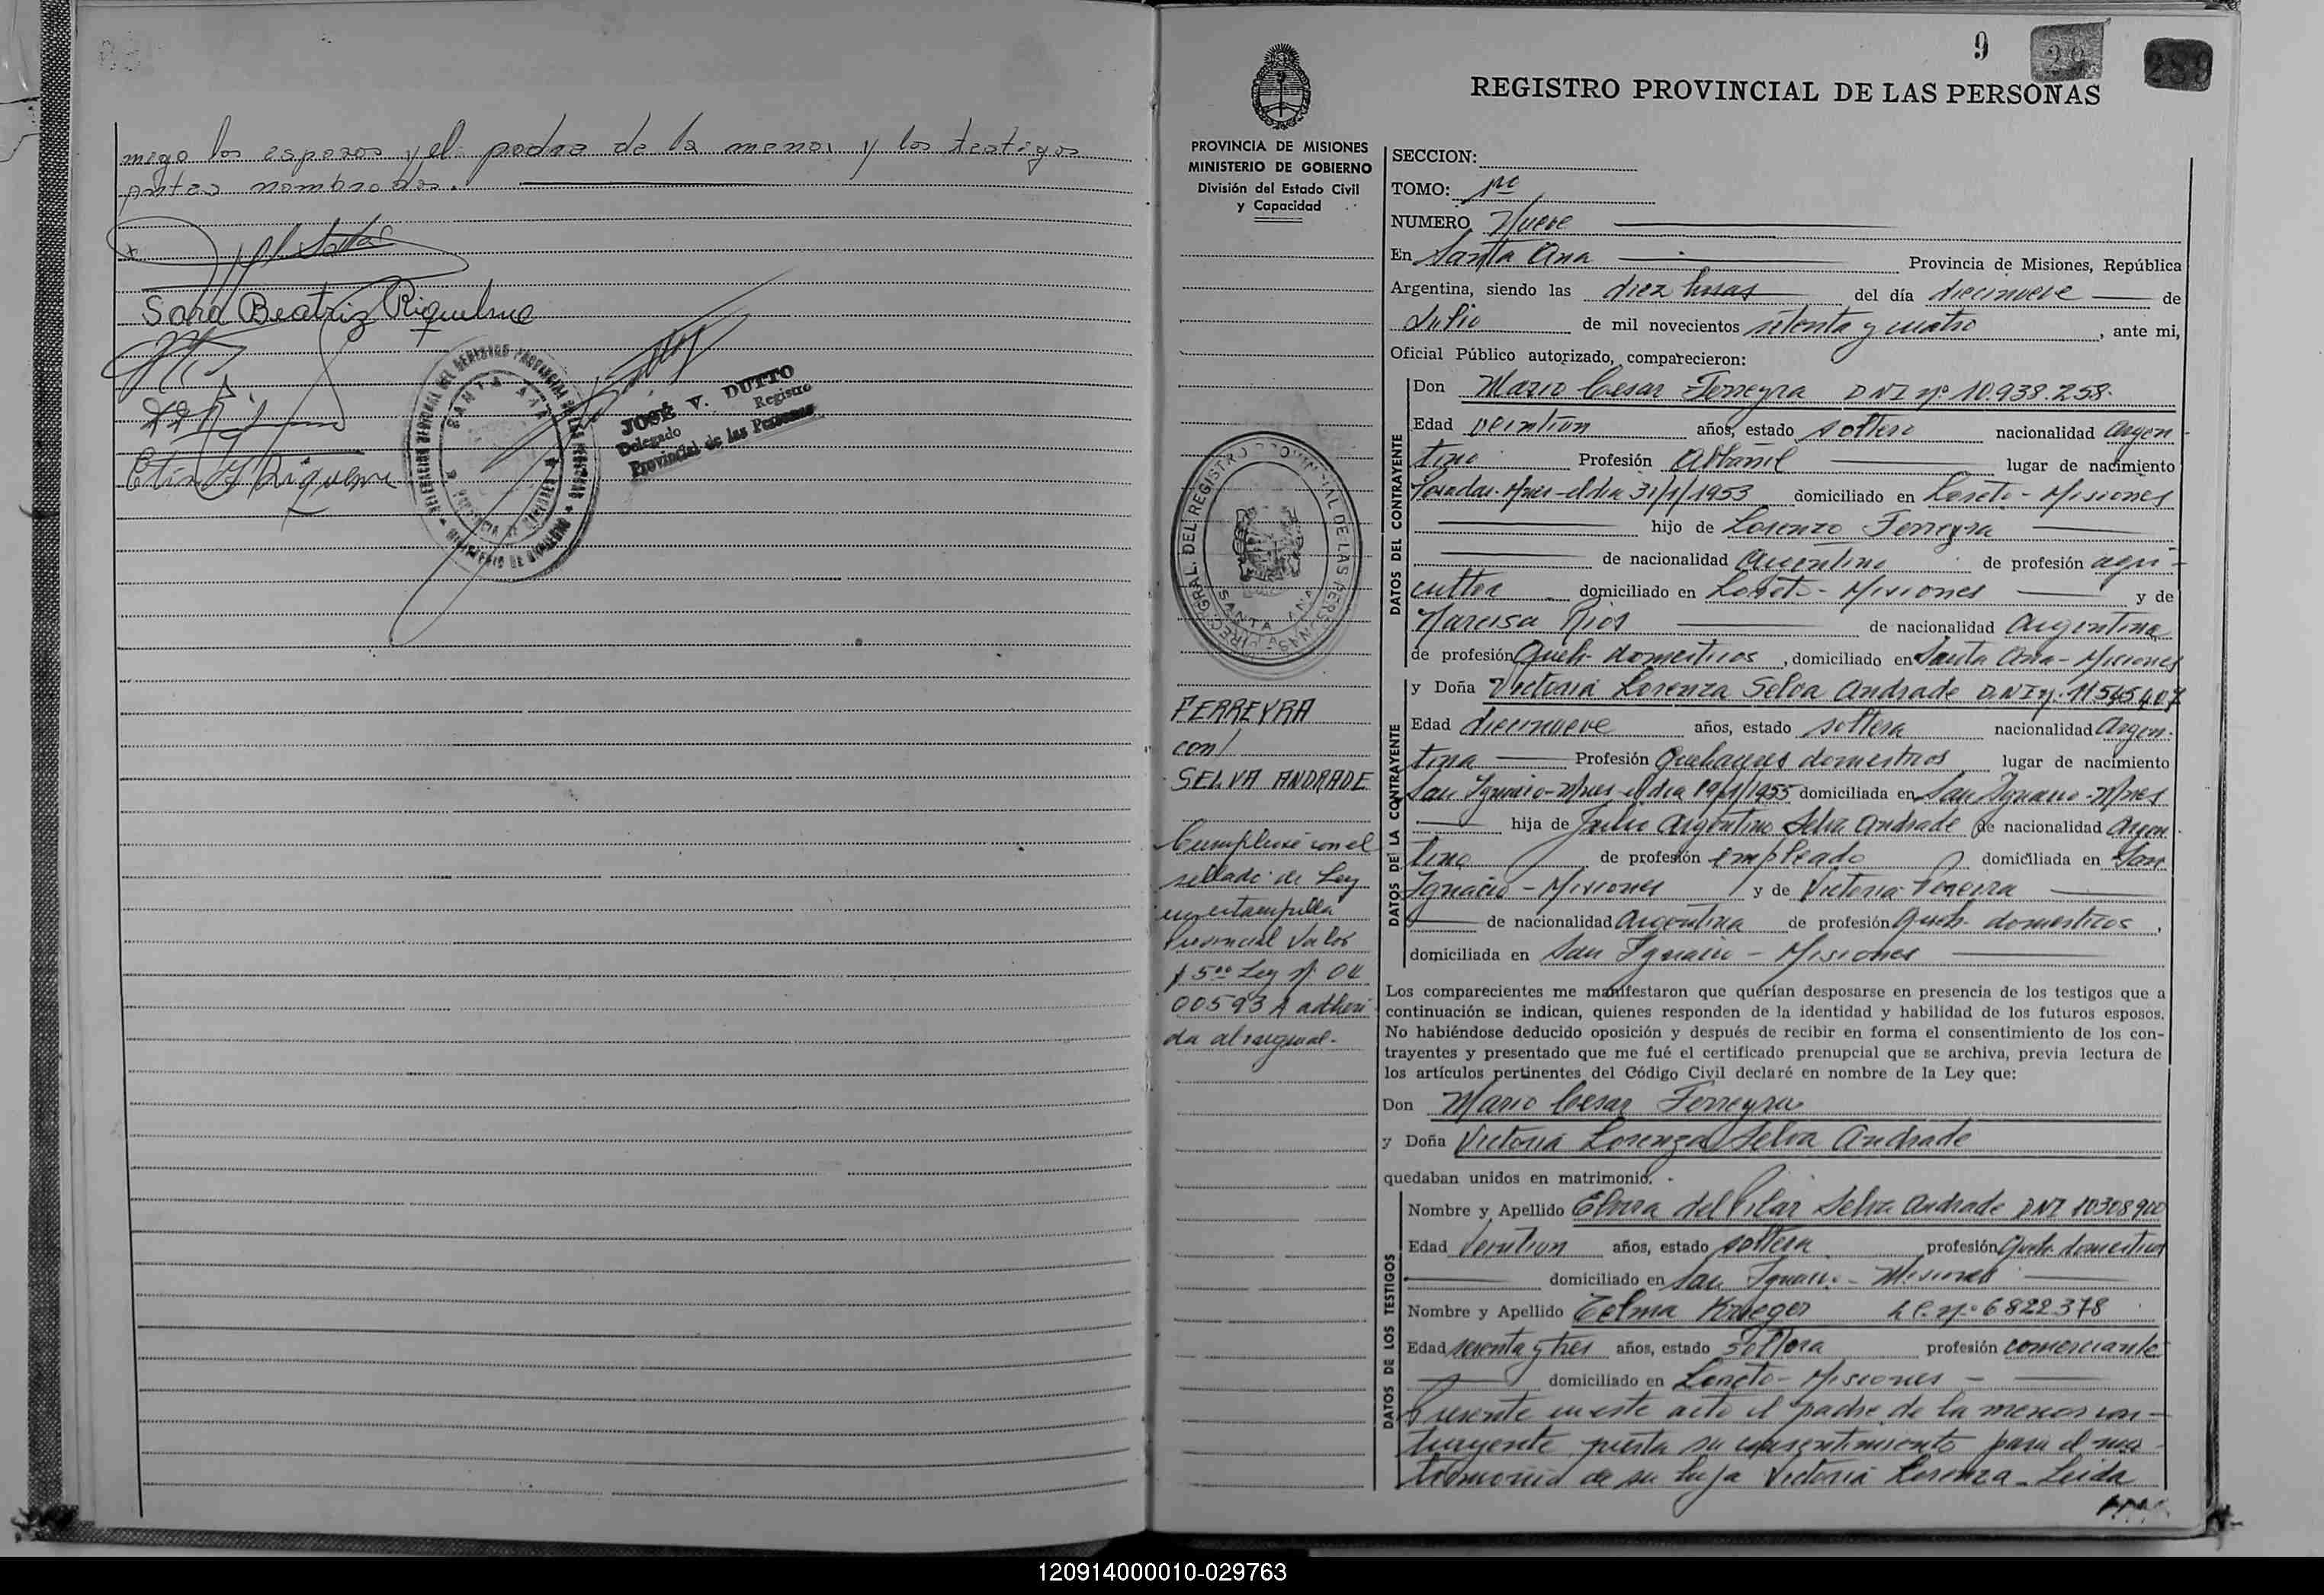 migo los esposos y el padre de la menor y los testigos
antes nombrados.
Sara Beatriz Riquelme
JOSÉ V. DUTTO
Delegado Registro
Provincial de las Personas
SANTA ANA
9
289
REGISTRO PROVINCIAL DE LAS PERSONAS
PROVINCIA DE MISIONES
MINISTERIO DE GOBIERNO
División del Estado Civil
y Capacidad
SANTA ANA
FERREYRA
con/
SELVA ANDRADE
Cumpliose con el
sellado de Ley
en estampilla
Provincial Valor
$ 500 Ley nº 04
00593 A adheri
da al marginal.-
SECCION:
TOMO: 1re
NUMERO Nueve
En Santa Ana Provincia de Misiones, República
Argentina, siendo las diez horas del día diecinueve de
Julio de mil novecientos setenta y cuatro, ante mi,
Oficial Público autorizado, comparecieron:
DATOS DEL CONTRAYENTE
Don Mario Cesar Ferreyra DNI nº 10.938.258.
Edad veintiun años, estado soltero nacionalidad argen
tino Profesión Albañil lugar de nacimiento
Posadas-Mnes-el dia 31/1/1953 domiciliado en Loreto - Misiones
hijo de Lorenzo Ferreyra
de nacionalidad Argentino de profesión agri-
cultor domiciliado en Loreto - Misiones y de
Narcisa Rios de nacionalidad Argentina
de profesión Queh. domesticos, domiciliado en Santa Ana - Misiones
DATOS DE LA CONTRAYENTE
y Doña Victoria Lorenza Selva Andrade D.N.I nº. 11545407
Edad diecinueve años, estado soltera nacionalidad Argen-
tina Profesión Quehaceres domesticos lugar de nacimiento
San Ignacio-Mnes el dia 19/1/1955 domiciliada en San Ignacio-Mnes
hija de Julio Argentino Selva Andrade de nacionalidad Argen
tino de profesión empleado domiciliada en San
Ignacio - Misiones y de Victoria Pereira
de nacionalidad Argentina de profesión Queh. domesticos,
domiciliada en San Ignacio - Misiones
Los comparecientes me manifestaron que querían desposarse en presencia de los testigos que a
continuación se indican, quienes responden de la identidad y habilidad de los futuros esposos.
No habiéndose deducido oposición y después de recibir en forma el consentimiento de los con-
trayentes y presentado que me fué el certificado prenupcial que se archiva, previa lectura de
los artículos pertinentes del Código Civil declaré en nombre de la Ley que:
Don Mario Cesar Ferreyra
y Doña Victoria Lorenza Selva Andrade
quedaban unidos en matrimonio.
DATOS DE LOS TESTIGOS
Nombre y Apellido Elvira del Pilar Selva Andrade DNI 10308900
Edad Veintiun años, estado soltera profesión Queh. domesticos
domiciliado en San Ignacio - Misiones
Nombre y Apellido Telma Krieger L.C. nº 6822378
Edad sesenta y tres años, estado Soltera profesión comerciante
domiciliado en Loreto - Misiones -
Presente en este acto el padre de la menor con-
trayente presta su consentimiento para el ma-
trimonio de su hija Victoria Lorenza - Leida
120914000010-029763